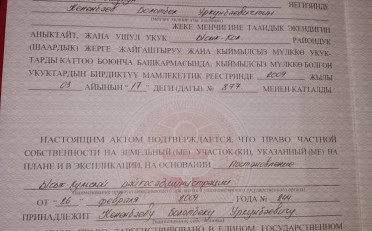 НЕГИЗИНДЕ
Жекенбаев Болотбек Уркунбаевичтин
ЖЕКЕ МЕНЧИГИНЕ ТААНДЫК ЭКЕНДИГИН
АНЫКТАЙТ, ЖАНА УШУЛ УКУК Ысык-Кол РАЙОНДУК
(ШААРДЫК) ЖЕРГЕ ЖАЙГАШТЫРУУ ЖАНА КЫЙМЫЛСЫЗ МҮЛККӨ УКУК-
ТАРДЫ КАТТОО БОЮНЧА БАШКАРМАСЫНДА, КЫЙМЫЛСЫЗ МҮЛККӨ БОЛГОН
УКУКТАРДЫН БИРДИКТҮҮ МАМЛЕКЕТТИК РЕЕСТРИНДЕ 2009 ЖЫЛЫ
03 АЙЫНЫН "17" ДЕГИ (ДАГЫ) № 877 МЕНЕН КАТТАЛДЫ
НАСТОЯЩИМ АКТОМ ПОДТВЕРЖДАЕТСЯ, ЧТО ПРАВО ЧАСТНОЙ
СОБСТВЕННОСТИ НА ЗЕМЕЛЬНЫЙ (ЫЕ) УЧАСТОК (КИ), УКАЗАННЫЙ (ЫЕ) НА
ПЛАНЕ И В ЭКСПЛИКАЦИИ, НА ОСНОВАНИИ постановление
Ысык Кульской райгосадминистрации
ОТ "26" февраля 2009 ГОДА №
ПРИНАДЛЕЖИТ Болотбеку